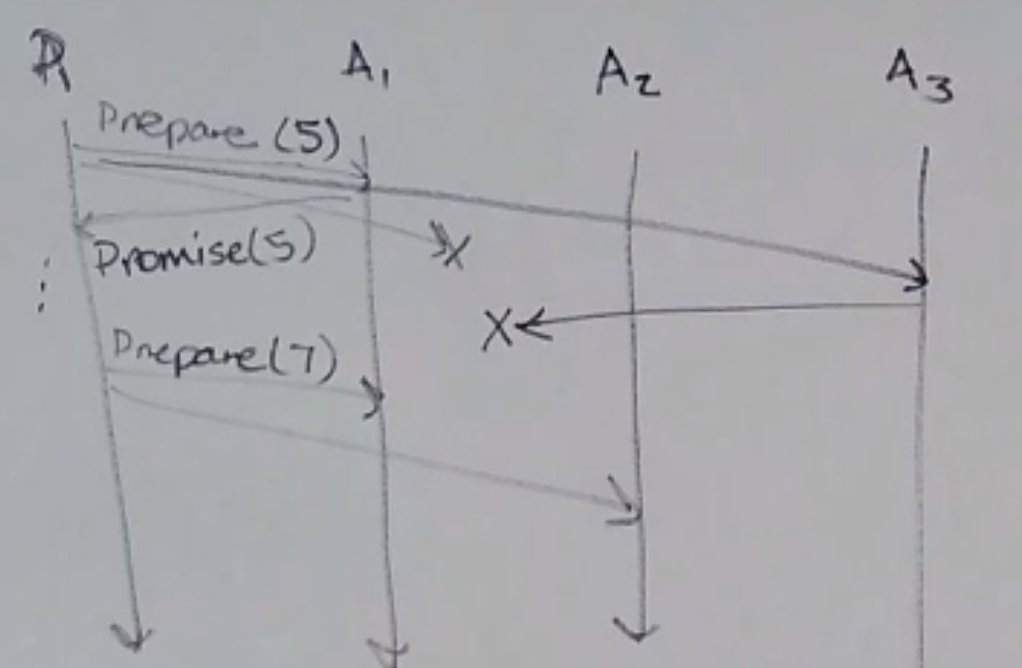 P₁ A₁ A₂ A₃
Prepare (5)
X
Promise(5)
X
Prepare(7)